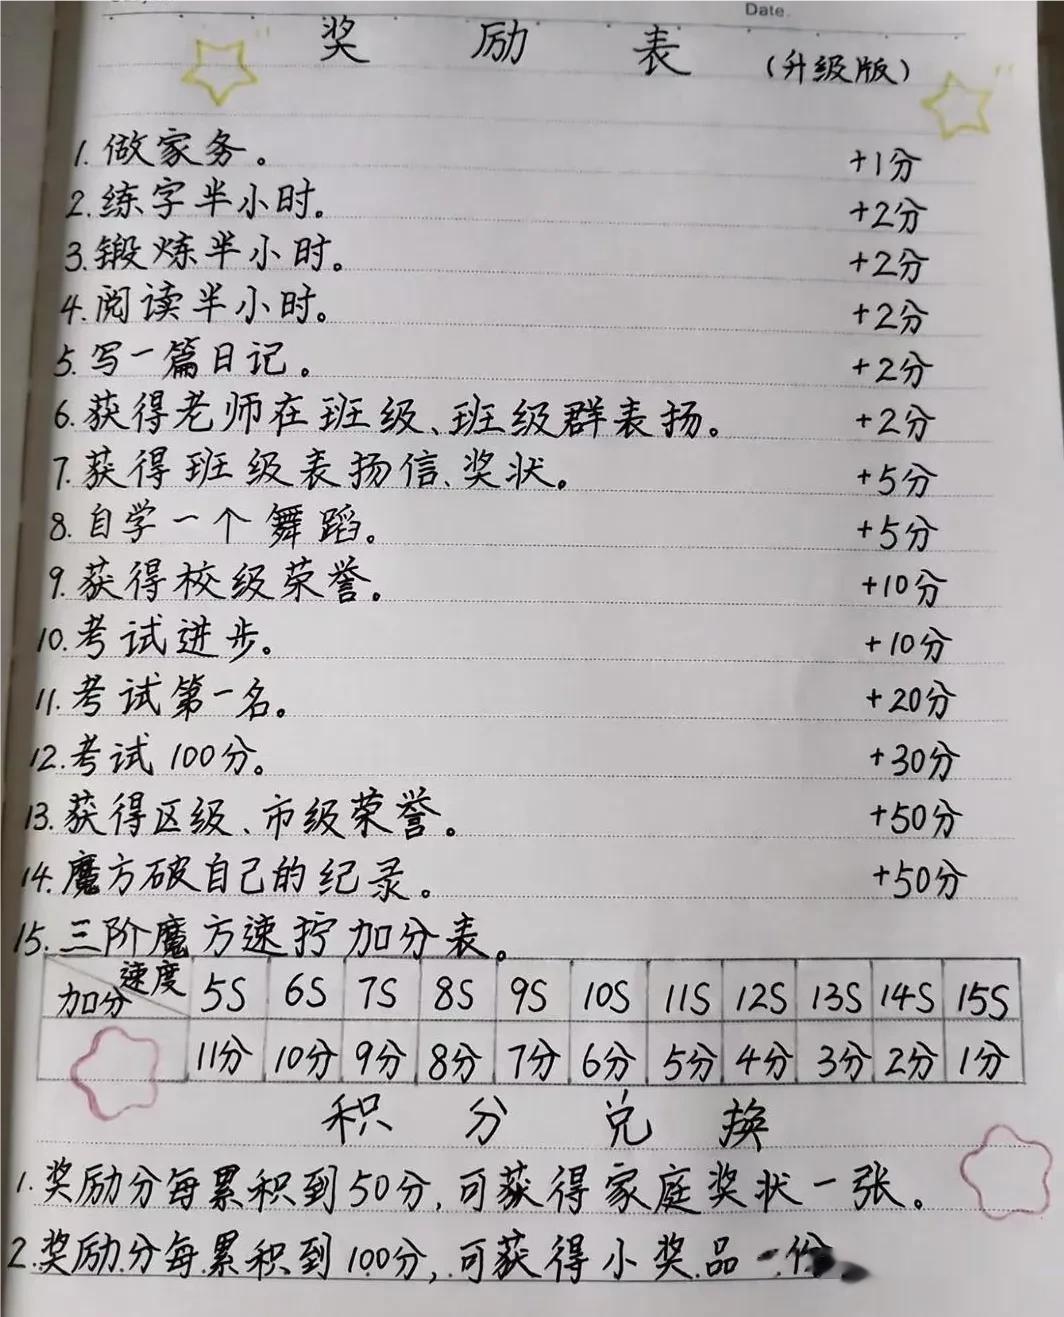 Date.
奖励表（升级版）
1.做家务。 +1分
2.练字半小时。 +2分
3.锻炼半小时。 +2分
4.阅读半小时。 +2分
5.写一篇日记。 +2分
6.获得老师在班级、班级群表扬。 +2分
7.获得班级表扬信、奖状。 +5分
8.自学一个舞蹈。 +5分
9.获得校级荣誉。 +10分
10.考试进步。 +10分
11.考试第一名。 +20分
12.考试100分。 +30分
13.获得区级、市级荣誉。 +50分
14.魔方破自己的纪录。 +50分
15.三阶魔方速拧加分表。
速度 加分 5S 6S 7S 8S 9S 10S 11S 12S 13S 14S 15S
11分 10分 9分 8分 7分 6分 5分 4分 3分 2分 1分
积分兑换
1.奖励分每累积到50分,可获得家庭奖状一张。
2.奖励分每累积到100分,可获得小奖品一份